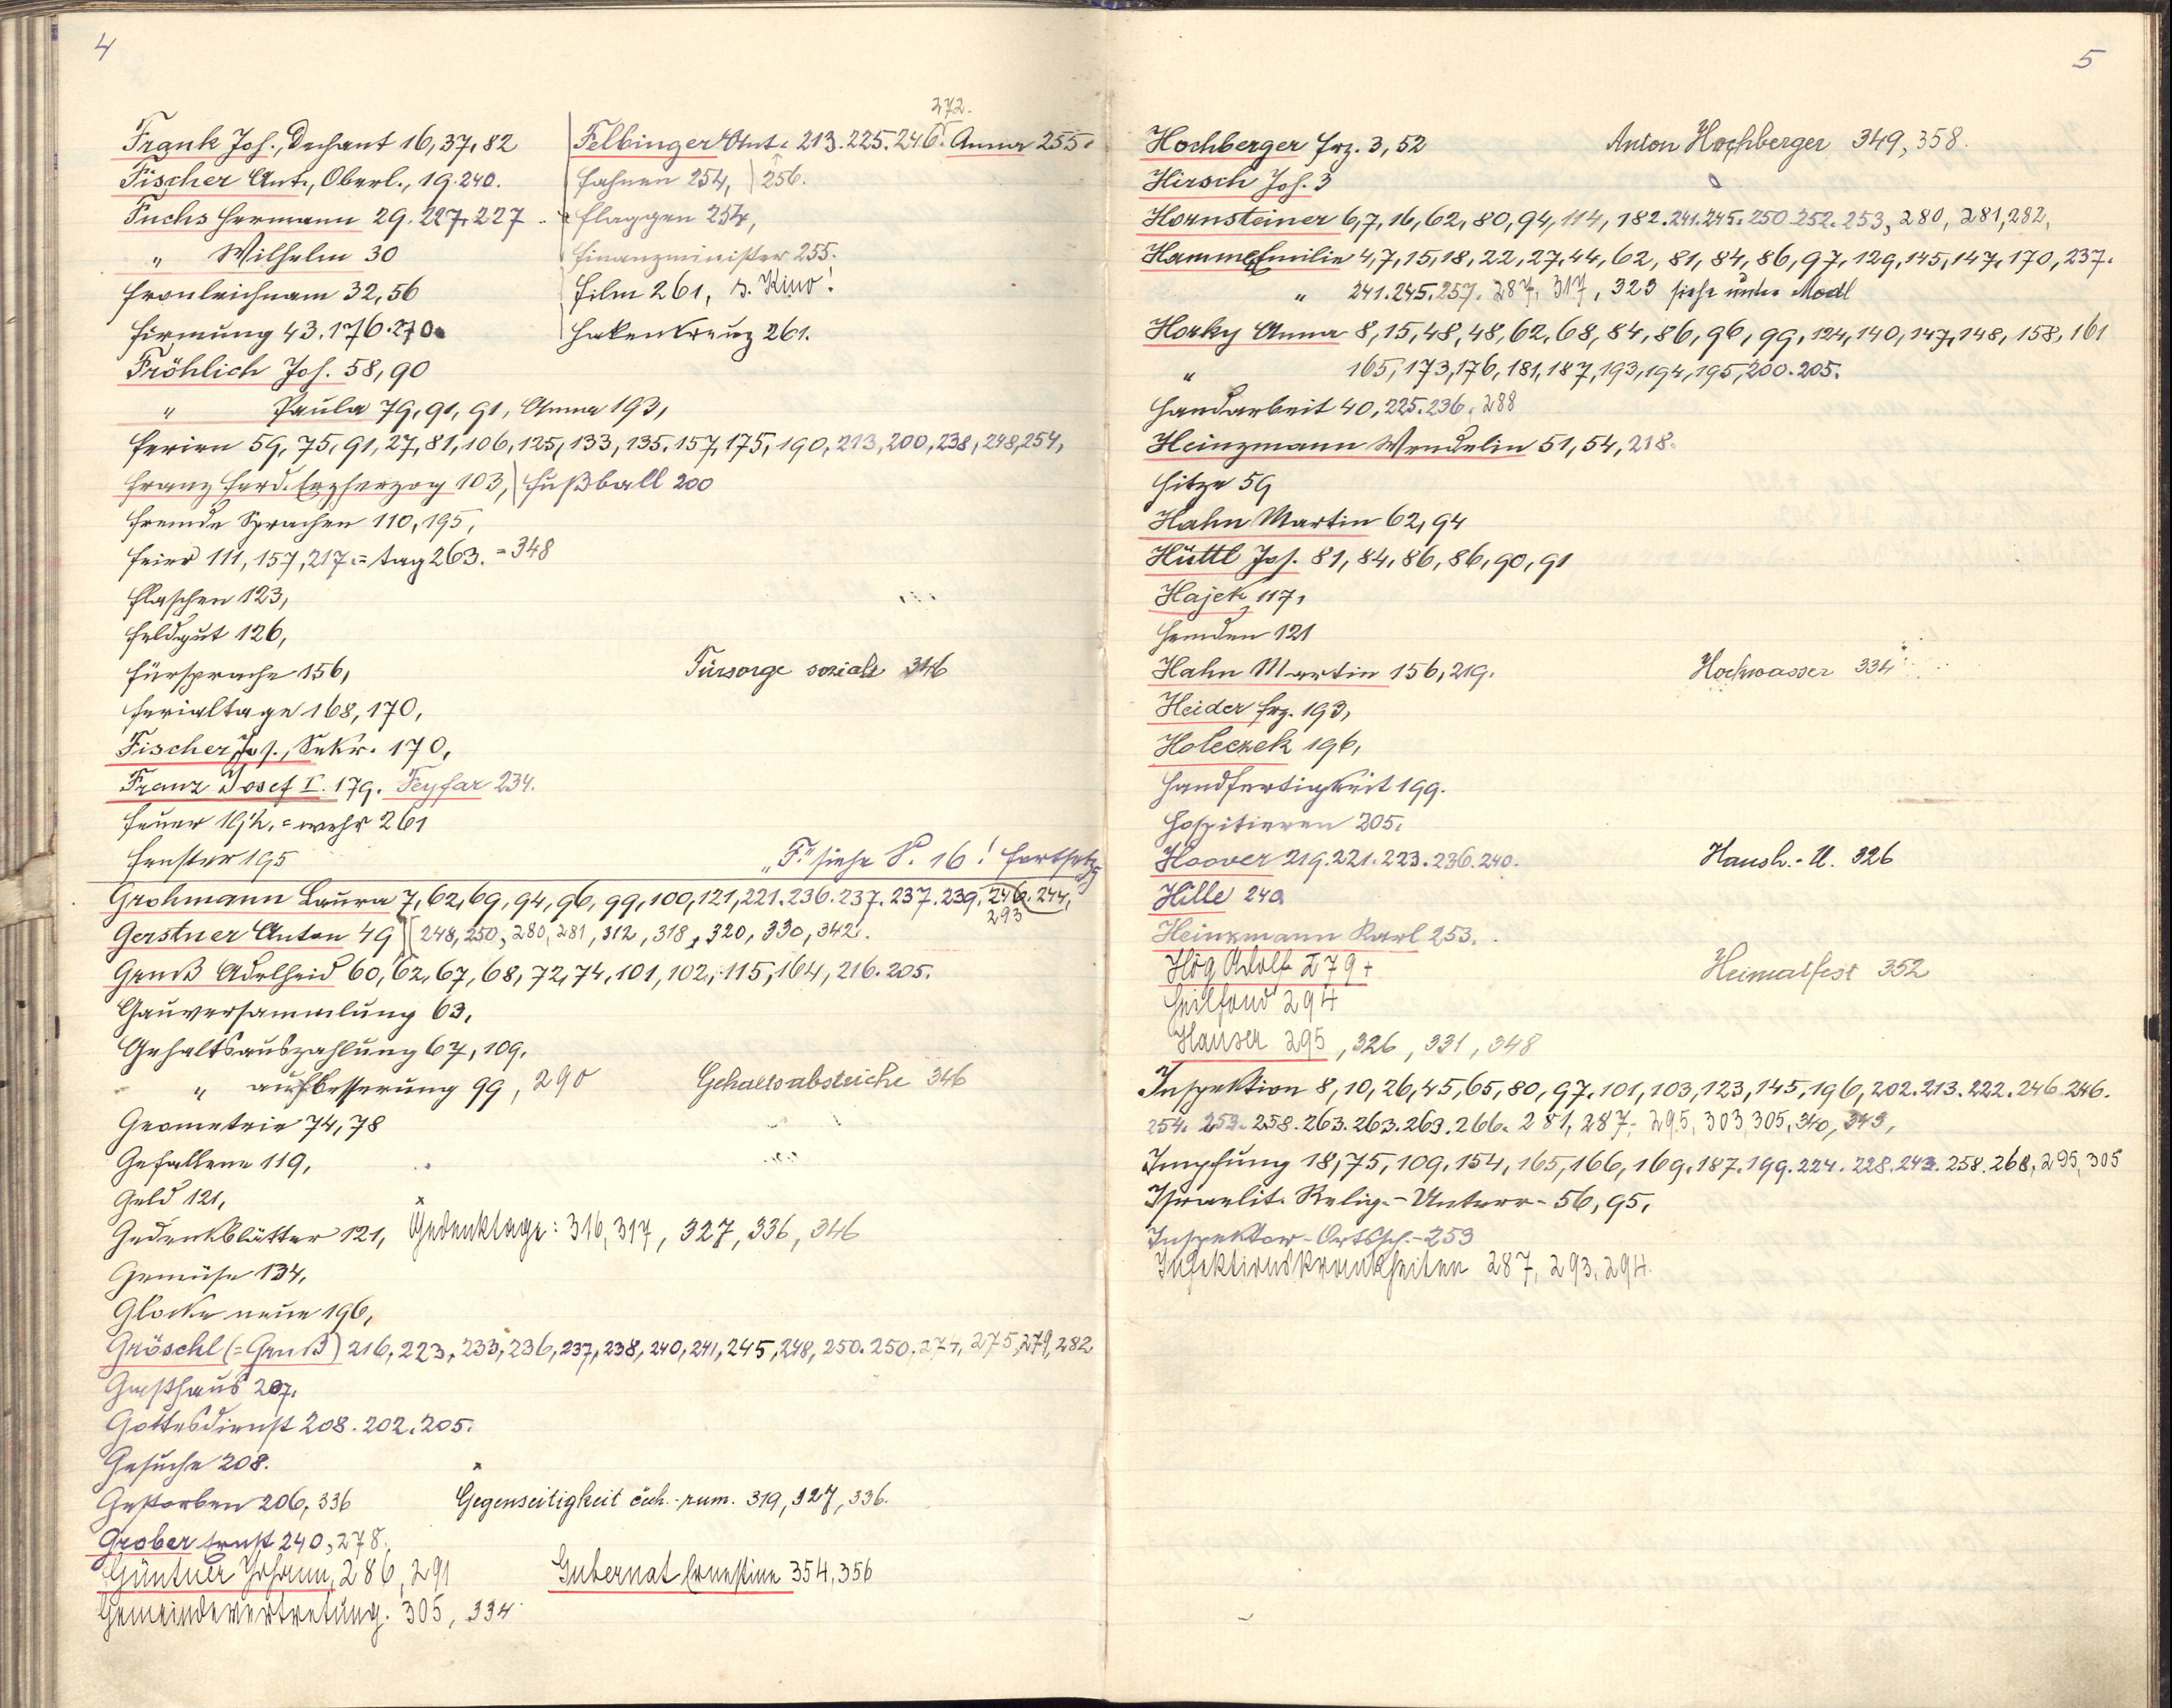 4
272.
Frank Jos., Dechant 16, 37, 82
Felbinger Ant. 213. 225. 246. Anna 255.
Fischer Ant., Oberl., 19. 240.
Fahnen 254, 256.
Fuchs Hermann 29. 227, 227
Flaggen 254,
" Wilhelm 30
Finanzminister 255.
Fronleichnam 32, 56
Film 261, s. Kino!
Firmung 43. 176. 270.
Hakenkreuz 261.
Fröhlich Jos. 58, 90
" Paula 79, 91, 91, Anna 193,
Ferien 59, 75, 91, 27, 81, 106, 125, 133, 135. 157, 175, 190, 213, 200, 238, 248, 254,
Franz Ferd. Erzherzog 103, Fußball 200
Fremde Sprachen 110, 195,
Feier 111, 157, 217. =tag 263. = 348
Flaschen 123,
Feldgut 126,
Fürsprache 156,
Fürsorge soziale 346
Ferialtage 168, 170,
Fischer Jos., Sekr. 170,
Franz Josef I. 179. Feyfar 234.
Feuer =wehr 261
Fenster 195
"F." siehe S. 16! Fortsetzg
Grohmann Laura 7, 62, 69, 94, 96, 99, 100, 121, 221. 236. 237. 237. 239. 246. 244,
293
Gerstner Anton 49 [248, 250, 280, 281, 312, 318, 320, 330, 342.
Gruß Adelheid 60, 62, 67, 68, 72, 74, 101, 102, 115, 164, 216. 205.
Gauversammlung 63,
Gehaltsauszahlung 67, 109.
" aufbesserung 99, 290
Gehaltsabstriche 346
Geometrie 74, 78
Gefallene 119,
Geld 121,
Gedenkblätter 121, Gedenktage: 316, 317, 327, 336, 346
Gemüse 134,
Glocke neue 196,
Gröschl (=Gruß) 216, 223, 233, 236, 237, 238, 240, 241, 245, 248, 250. 250. 274, 275, 279, 282
Gasthaus 207.
Gottesdienst 208. 202. 205.
Gesuche 208.
Gestorben 206, 336
Gegenseitigkeit čech.-rum. 319, 327, 336.
Grober Ernst 240, 278.
Güntner Johann, 286, 291
Gubernat Ernestine 354, 356
Gemeindevertretung. 305, 334
5
Hochberger Frz. 3, 52
Anton Hochberger 349, 358.
Hirsch Jos. 3
Hornsteiner 6, 7, 16, 62, 80, 94, 114, 182. 241. 245. 250. 252. 253, 280, 281, 282,
Hamme Emilie 4, 7, 15, 18, 22, 27, 44, 62, 81, 84, 86, 97, 129, 145, 147, 170, 237.
" 241. 245. 257. 287, 317, 323 siehe unter Modl
Horky Anna 8, 15, 48, 48, 62, 68, 84, 86, 96, 99, 124, 140, 147, 148, 158, 161
" 165, 173, 176, 181, 187, 193, 194, 195, 200. 205.
Handarbeit 40, 225. 236. 288
Heinzmann Wendelin 51, 54, 218.
Hitze 59
Hahn Martin 62, 94
Hüttl Jos. 81, 84, 86, 86, 90, 91
Hajek 117,
Hemden 121
Hahn Martin 156, 219.
Hochwasser 334
Heider Frz. 193,
Holeczek 196,
Handfertigkeit 199.
Hospitieren 205.
Hoover 219. 221. 223. 236. 240.
Haush.-U. 326
Hille 240
Heinzmann Karl 253.
Hög Adolf 279+
Heimatfest 352
Heilfond 294
Hauser 295, 326, 331, 348
Inspektion 8, 10, 26, 45, 65, 80, 97, 101, 103, 123, 145, 196, 202. 213. 222. 246. 246.
254. 253. 258. 263. 263. 263. 266. 281, 287, 295, 303, 305, 340, 343,
Impfung 18, 75, 109, 154, 165, 166, 169, 187. 199. 224. 228. 243. 258. 268, 295, 305
Israelit. Relig.-Unterr. 56, 95,
Inspektor-Ortssch. 253
Infektionskrankheiten 287, 293, 294.